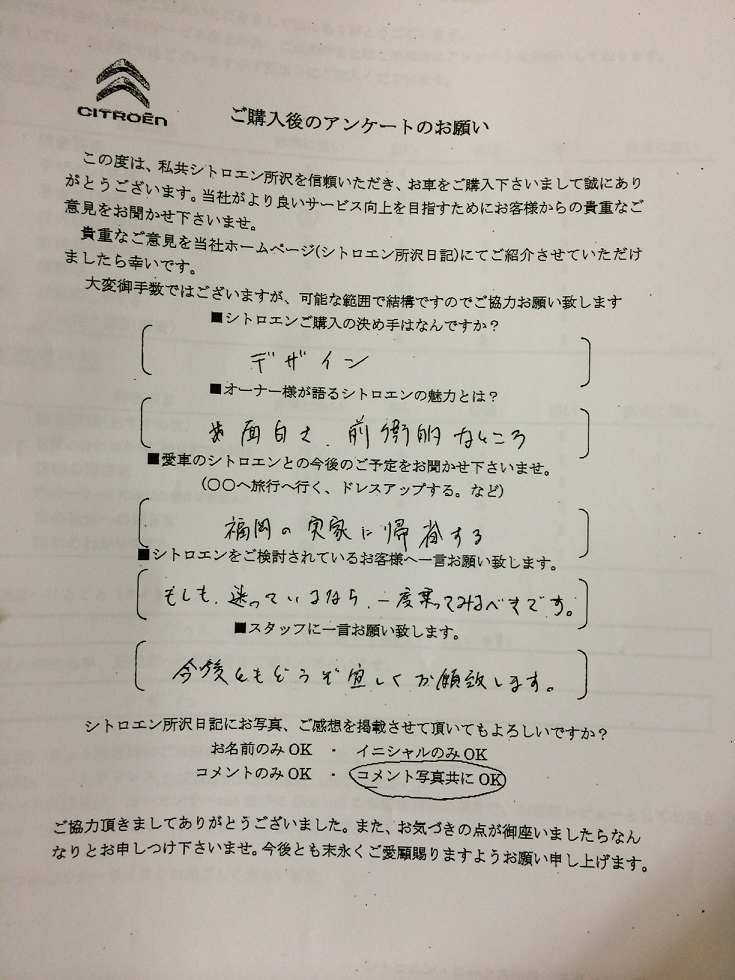 CITROËN
ご購入後のアンケートのお願い
この度は、私共シトロエン所沢を信頼いただき、お車をご購入下さいまして誠にあり
がとうございます。当社がより良いサービス向上を目指すためにお客様からの貴重なご
意見をお聞かせ下さいませ。
貴重なご意見を当社ホームページ(シトロエン所沢日記)にてご紹介させていただけ
ましたら幸いです。
大変御手数ではございますが、可能な範囲で結構ですのでご協力お願い致します
■シトロエンご購入の決め手はなんですか？
デザイン
■オーナー様が語るシトロエンの魅力とは？
面白さ、前衛的なところ
■愛車のシトロエンとの今後のご予定をお聞かせ下さいませ。
(○○へ旅行へ行く、ドレスアップする。など)
福岡の実家に帰省する
■シトロエンをご検討されているお客様へ一言お願い致します。
もしも、迷っているなら、一度乗ってみるべきです。
■スタッフに一言お願い致します。
今後ともどうぞ宜しくお願致します。
シトロエン所沢日記にお写真、ご感想を掲載させて頂いてもよろしいですか？
お名前のみ OK ・ イニシャルのみ OK
コメントのみ OK ・ コメント写真共に OK
ご協力頂きましてありがとうございました。また、お気づきの点が御座いましたらなん
なりとお申しつけ下さいませ。今後とも末永くご愛顧賜りますようお願い申し上げます。